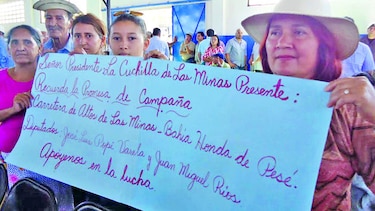 Señor Presidente La Cuchilla de Las Minas Presente:
Recuerda la Promesa de Campaña
Carretera de Altos de Las Minas - Bahía Honda de Pesé.
Diputados: José Luis Popi Varela y Juan Miguel Ríos
Apoyenos en la lucha.